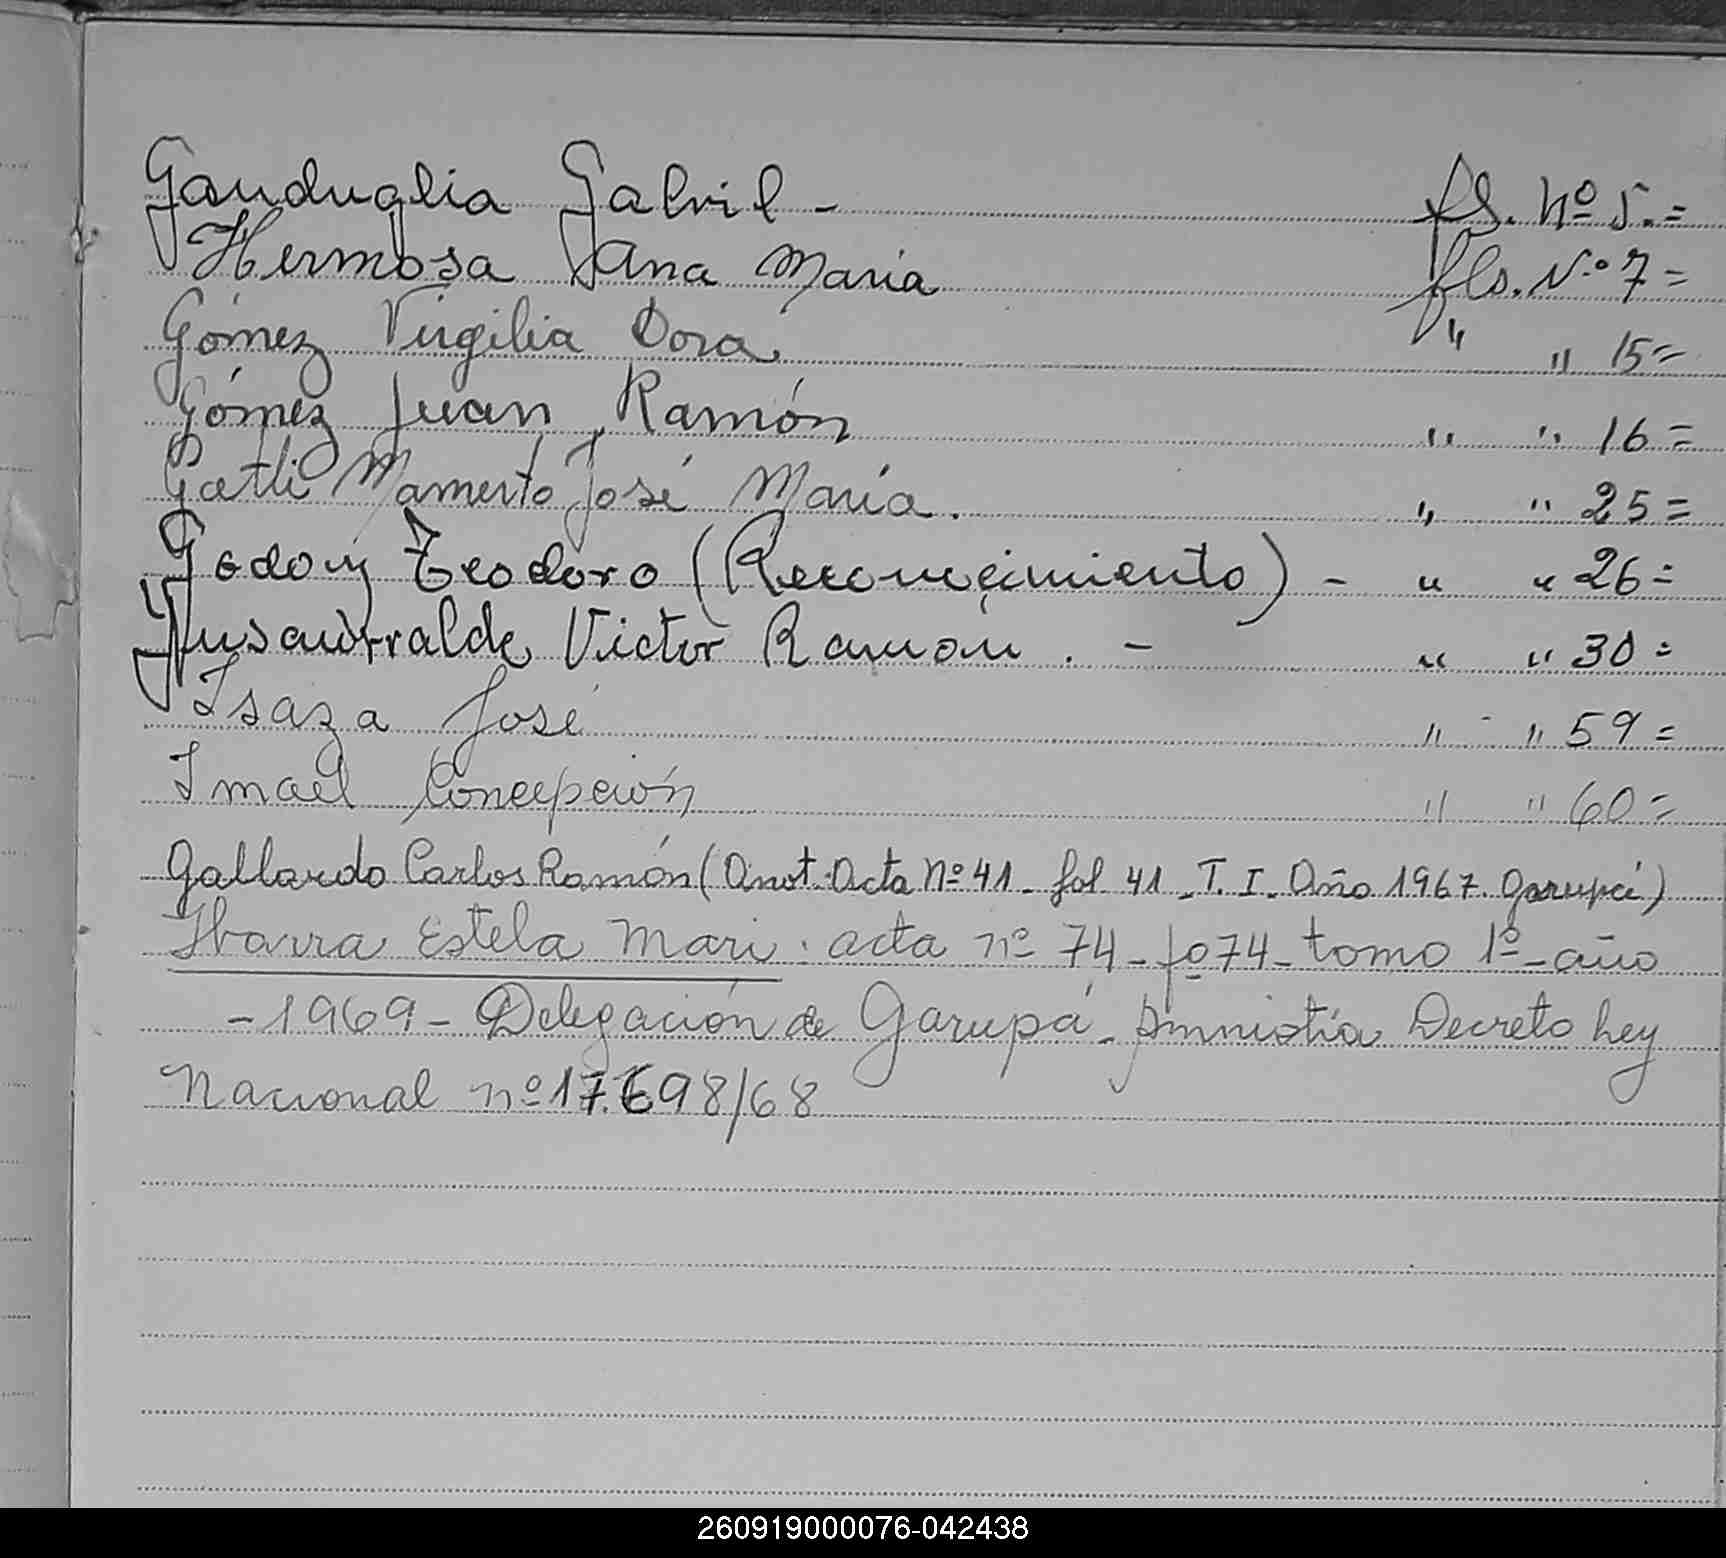 Gauduglia Gabril - fls. Nº 5.=
Hermosa Ana Maria fls. N.º 7=
Gómez Virgilia Dora " " 15=
Gómez Juan Ramón " " 16=
Mamerto José María. " " 25=
Godoy Teodoro (Reconocimiento) - " " 26=
Victor Ramón . - " " 30=
Isaza José " " 59=
Imael Concepción " " 60=
Gallardo Carlos Ramón (Anot. Acta Nº 41 - fol 41 - T. I. Año 1967. Garupá)
Ibarra Estela Mari : acta nº 74 - fº 74 - tomo 1º - año
- 1969 - Delegación de Garupá - Amnistía Decreto Ley
Nacional nº 17.698/68
260919000076-042438